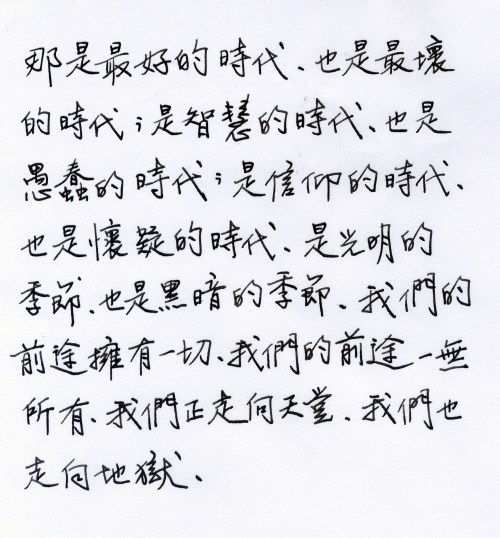 那是最好的時代、也是最壞
的時代；是智慧的時代、也是
愚蠢的時代；是信仰的時代、
也是懷疑的時代、是光明的
季節、也是黑暗的季節、我們的
前途擁有一切、我們的前途一無
所有、我們正走向天堂、我們也
走向地獄、